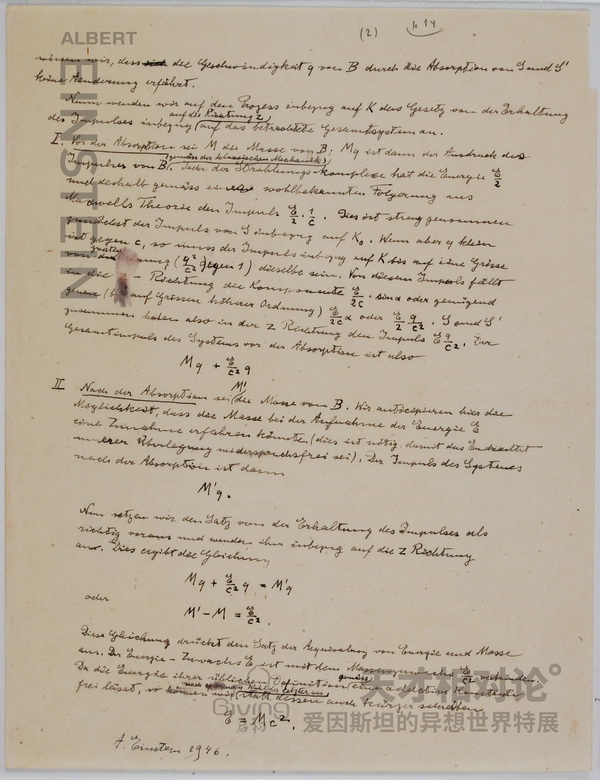 ALBERT
EINSTEIN
(2)
wissen wir, dass die Geschwindigkeit q von B durch die Absorption von S und S'
keine Aenderung erfährt.
Nun wenden wir auf den Prozess inbezug auf K das Gesetz von der Erhaltung
des Impulses inbezug auf die Richtung z auf das betrachtete Gesamtsystem an.
I. Vor der Absorption sei M die Masse von B; Mq ist dann der Ausdruck des
Impulses von B (gemäss der klassischen Mechanik). Jeder der Strahlungs-Komplexe hat die Energie E/2
und deshalb gemäss einer wohlbekannten Folgerung aus
Maxwells Theorie den Impuls E/2 · 1/c. Dies ist streng genommen
zunächst der Impuls von S inbezug auf K₀. Wenn aber q klein
ist gegen c, so muss der Impuls inbezug auf K bis auf eine Grösse
von (q²/c² gegen 1) dieselbe sein. Von diesem Impuls fällt
in die - Richtung die Komponente E/2c · sin α oder genügend
genau (bis auf Grössen höherer Ordnung) E/2c α oder E/2 q/c². S und S'
zusammen haben also in der z Richtung den Impuls E q/c². Der
Gesamtimpuls des Systems vor der Absorption ist also
Mq + E/c² q
II. Nach der Absorption sei M' die Masse von B. Wir antizipieren hier die
Möglichkeit, dass die Masse bei der Aufnahme der Energie E
eine Zunahme erfahren könnte (dies ist nötig, damit das Endresultat
unserer Überlegung widerspruchsfrei sei). Der Impuls des Systems
nach der Absorption ist dann
M'q.
Nun setzen wir den Satz von der Erhaltung des Impulses als
richtig voraus und wenden ihn inbezug auf die z Richtung
an. Dies ergibt die Gleichung
Mq + E/c² q = M'q
oder
M' - M = E/c².
Diese Gleichung drückt den Satz der Aequivalenz von Energie und Masse
aus. Der Energie-Zuwachs E ist mit dem Massenzuwachs E/c² verbunden.
Da die Energie ihrer üblichen Definition gemäss eine additive Konstante
frei lässt, so können wir nach der statt dessen auch kürzer schreiben
E = Mc².
A. Einstein 1946.
天才相对论
爱因斯坦的异想世界特展